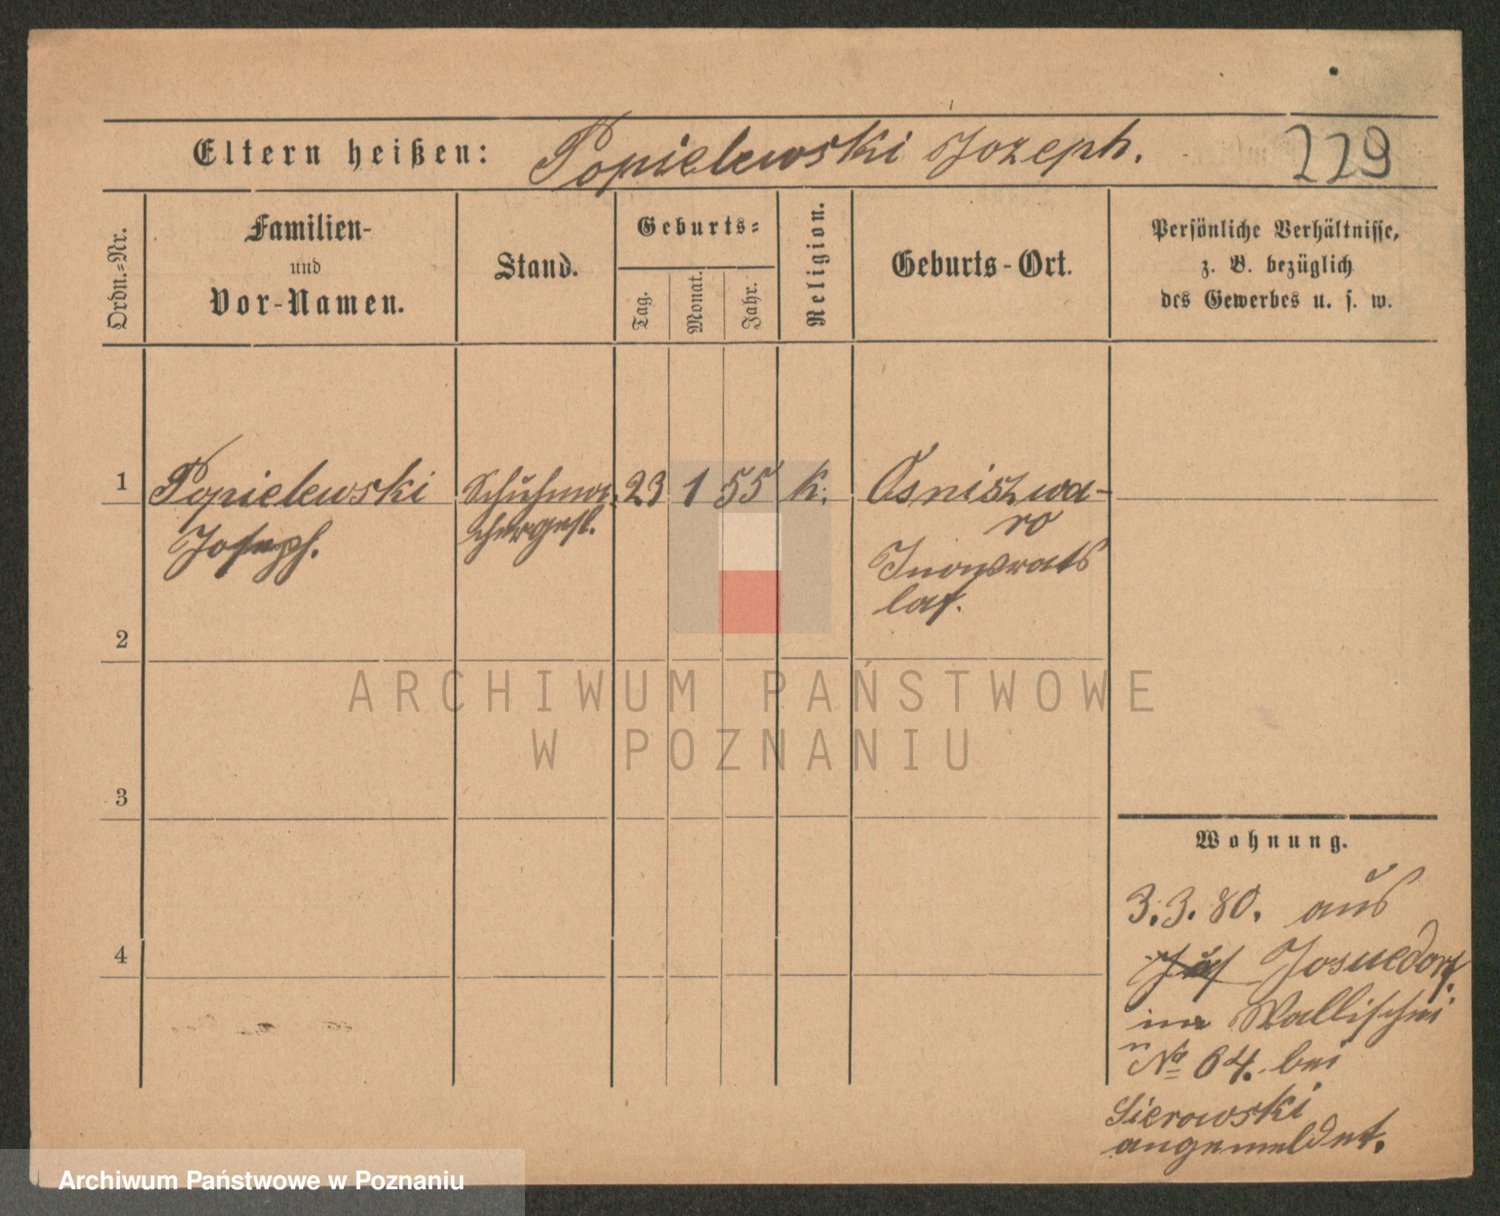 Eltern heißen: Popielewski Jozeph. 229
Ordn.-Nr.
Familien-
und
Vor-Namen.
Stand.
Geburts-
Tag.
Monat.
Jahr.
Religion.
Geburts-Ort.
Persönliche Verhältnisse,
z. B. bezüglich
des Gewerbes u. s. w.
1 Popielewski Schuhma- 23 1 55 k. Osniszwa-
Joseph. chergesl. ro
Inowrats
law.
2
ARCHIWUM PAŃSTWOWE
W POZNANIU
3
Wohnung.
3.3.80. aus
Josuedorf
in Wallischei
4
No 64. bei
Sierowski
angemeldet.
Archiwum Państwowe w Poznaniu